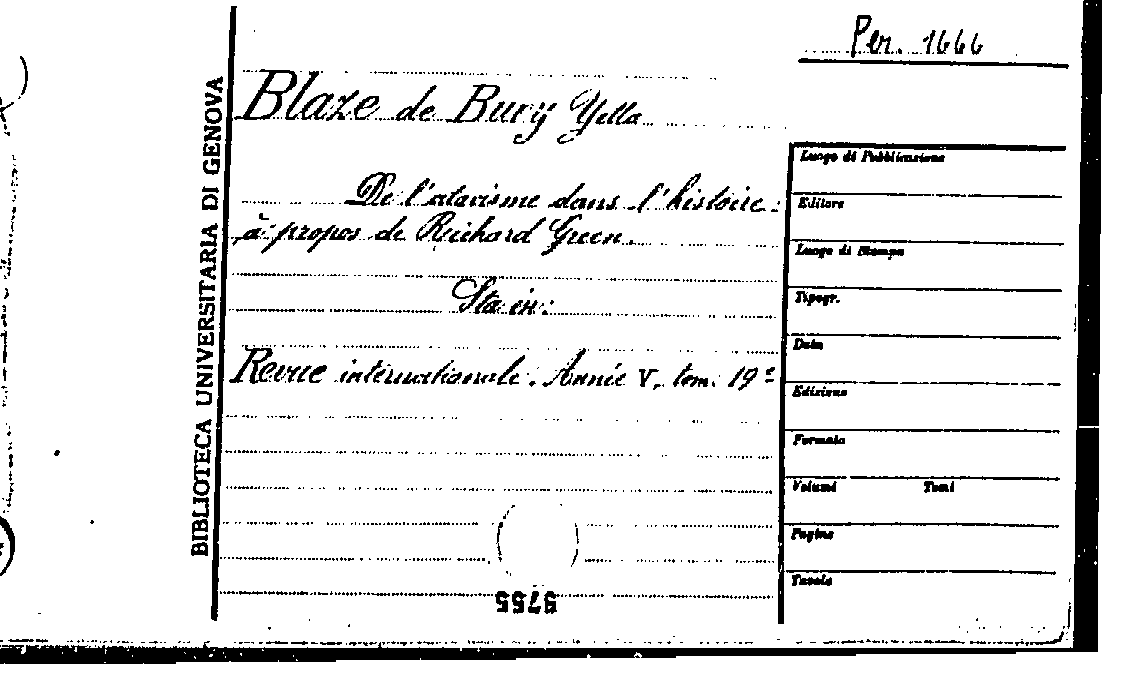 Per. 1666
BIBLIOTECA UNIVERSITARIA DI GENOVA
Blaze de Bury Yella
De l'atavisme dans l'histoire:
à propos de Richard Green.
Sta in:
Revue internationale. Année V, tom. 19º
Luogo di Pubblicazione
Editore
Luogo di Stampa
Tipogr.
Data
Edizione
Formato
Volumi Tomi
Pagine
Tavole